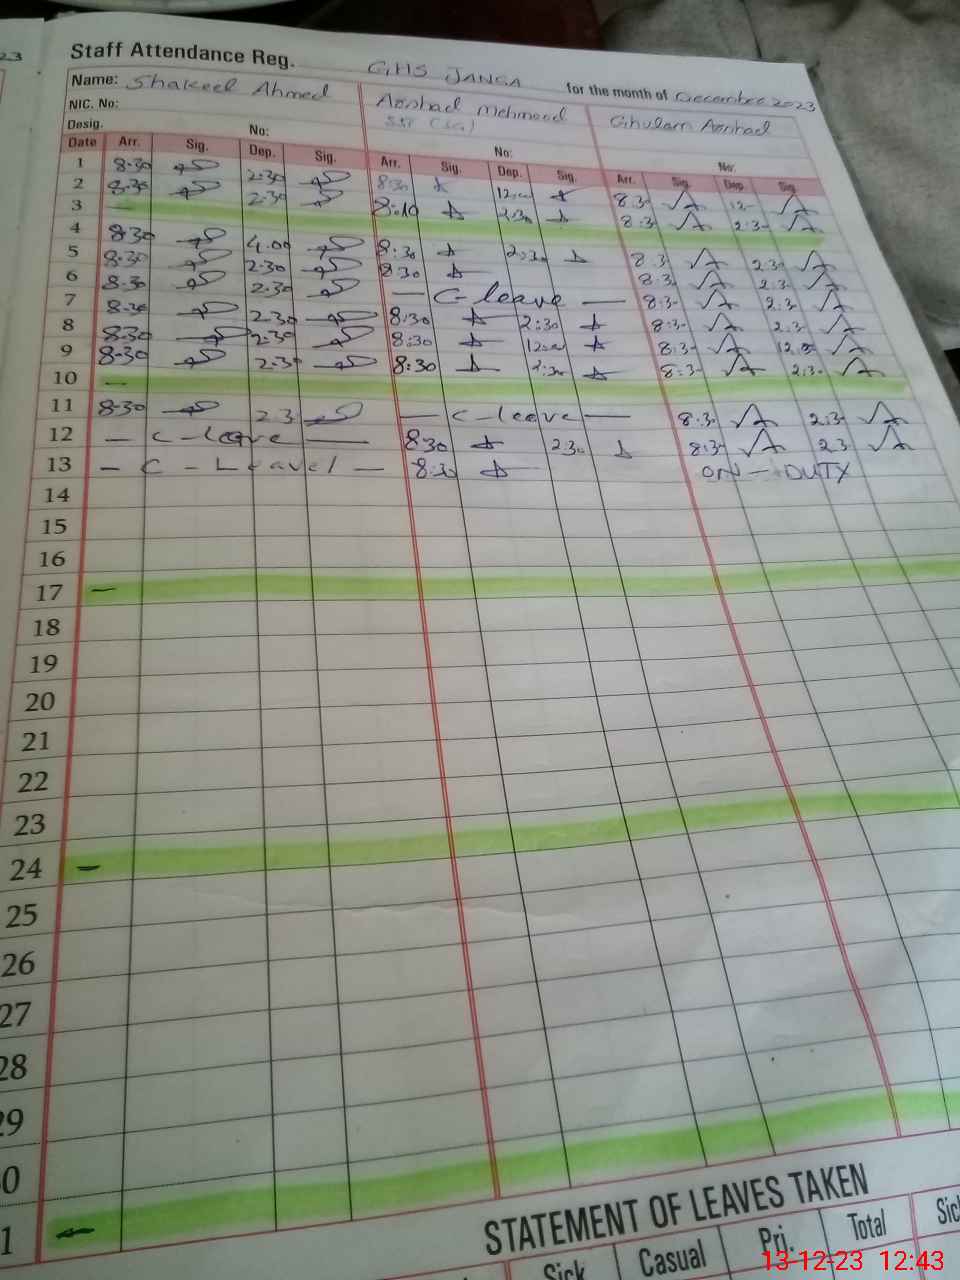 23
Staff Attendance Reg. GHS JANGA for the month of December 2023
Name: Shakeel Ahmed Arshad Mehmood Ghulam Arshad
NIC. No: SST (SC)
Desig. No: No: No:
Date Arr. Sig. Dep. Sig. Arr. Sig. Dep. Sig. Arr. Sig. Dep. Sig.
1 8:30 2:30 8:30 8:3-
2 8:30 2:30 8:10 2:30 8:3- 2:3-
3 —
4 8:30 4:00 8:30 2:30 8:3- 2:3-
5 8:30 2:30 8:30 8:3- 2:3-
6 8:30 2:30 — C-leave — 8:3- 2:3-
7 8:30 2:30 8:30 2:30 8:3- 2:3-
8 8:30 2:30 8:30 8:3- 12:3-
9 8:30 2:30 8:30 2:30 8:3- 2:3-
10 —
11 8-30 2:3- — C-leave — 8:3- 2:3-
12 — C-leave — 8:30 2:30 8:3- 2:3-
13 — C-Leavel — 8:30 ON — DUTY
14
15
16
17 —
18
19
20
21
22
23
24 —
25
26
27
28
29
0
1 —
STATEMENT OF LEAVES TAKEN
Sick Casual Pri. Total Sic
13-12-23 12:43